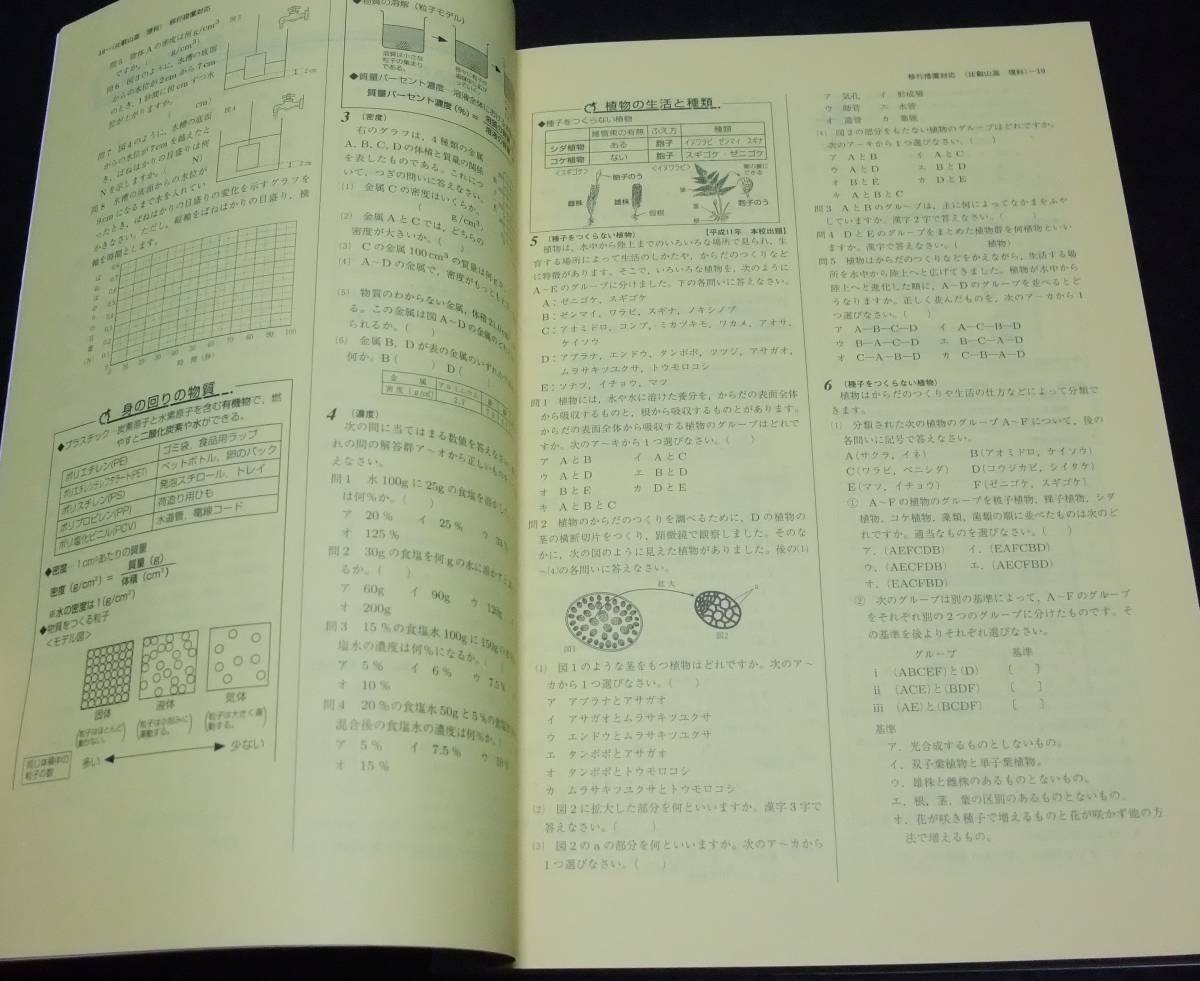 18－（比叡山高　理科）　移行措置対応
問5　物体Aの密度は何g/cm³
ですか。（　　g/cm³）
問6　図3のように，水槽の底面
からの水位が2cmから7cm
のとき，1秒間に何cmずつ水
位が上がりますか。
（　　cm）
問7　図4のように，水槽の底面
からの水位が7cmを越えたと
き，ばねばかりの目盛りは何
Nを示しますか。（　　N）
問8　水槽の底面からの水位が
9cmになるまで水を入れてい
ったとき，ばねばかりの目盛りの変化を示すグラフを
かきなさい。ただし，縦軸をばねばかりの目盛り，横
軸を時間とします。
図3
2cm
図4
2cm
ばねばかりの目盛（N）
0　10　20　30　40　50　60　70　80　90　100
時間（秒）
身の回りの物質
◆プラスチック…炭素原子と水素原子を含む有機物で，燃
やすと二酸化炭素や水ができる。
ポリエチレン(PE)　ゴミ袋，食品用ラップ
ポリエチレンテレフタラート(PET)　ペットボトル，卵のパック
ポリスチレン(PS)　発泡スチロール，トレイ
ポリプロピレン(PP)　荷造り用ひも
ポリ塩化ビニル(PCV)　水道管，電線コード
◆密度…1cm³あたりの質量
密度（g/cm³）＝質量（g）／体積（cm³）
※水の密度は1(g/cm³)
◆物質をつくる粒子
<モデル図>
固体　液体　気体
（粒子はほとんど動かない。）　（粒子は小刻みに運動する。）　（粒子は大きく運動する。）
同じ体積中の粒子の数　多い　少ない
◆物質の溶解（粒子モデル）
溶質は小さな
粒子の集まり
である。
◆質量パーセント濃度…溶液全体における
質量パーセント濃度(％)＝
3　（密度）
右のグラフは，4種類の金属
A，B，C，Dの体積と質量の関係
を表したものである。これにつ
いて，つぎの問いに答えなさい。
(1)　金属Cの密度はいくらか。
（　　g/cm³）
(2)　金属AとCでは，どちらの
密度が大きいか。（　　）
(3)　Cの金属100cm³の質量は何g
(4)　A～Dの金属で，密度がもっとも
(5)　物質のわからない金属，体積21.0cm³
る。この金属は図A～Dの金属のどれ
られるか。（　　）
(6)　金属B，Dが表の金属のいずれか
何か。B（　　）D（　　）
金　属　アルミニウム
密度（g/cm³）　2.7
4　（濃度）
次の問に当てはまる数値を答えなさい。
れの問の解答群ア～オから正しいものを
えなさい。
問1　水100gに25gの食塩を溶かした
は何％か。（　　）
ア　20％　イ　25％　ウ
オ　125％
問2　30gの食塩を何gの水に溶かすと
るか。（　　）
ア　60g　イ　90g　ウ　120g
オ　200g
問3　15％の食塩水100gに150gの
塩水の濃度は何％になるか。（
ア　5％　イ　6％　ウ　7.5％
オ　10％
問4　20％の食塩水50gと5％の食塩水
混合後の食塩水の濃度は何％か。（
ア　5％　イ　7.5％　ウ　10％
オ　15％
移行措置対応　（比叡山高　理科）－19
植物の生活と種類
◆種子をつくらない植物
維管束の有無　ふえ方　種類
シダ植物　ある　胞子　イヌワラビ・ゼンマイ・スギナ
コケ植物　ない　胞子　スギゴケ・ゼニゴケ
<スギゴケ>　<イヌワラビ>
胞子のう　雌株　雄株　仮根　葉　茎　根　葉の裏にできる　胞子のう
5　（種子をつくらない植物）　【平成11年　本校出題】
植物は，水中から陸上までのいろいろな場所で見られ，生
育する場所によって生活のしかたや，からだのつくりなど
に特徴があります。そこで，いろいろな植物を，次のように
A～Eのグループに分けました。下の各問いに答えなさい。
A：ゼニゴケ，スギゴケ
B：ゼンマイ，ワラビ，スギナ，ノキシノブ
C：アオミドロ，コンブ，ミカヅキモ，ワカメ，アオサ，
ケイソウ
D：アブラナ，エンドウ，タンポポ，ツツジ，アサガオ，
ムラサキツユクサ，トウモロコシ
E：ソテツ，イチョウ，マツ
問1　植物には，水や水に溶けた養分を，からだの表面全体
から吸収するものと，根から吸収するものとがあります。
からだの表面全体から吸収するグループはどれで
すか。次のア～キから1つ選びなさい。（　　）
ア　AとB　イ　AとC
ウ　AとD　エ　BとD
オ　BとE　カ　DとE
キ　AとBとC
問2　植物のからだのつくりを調べるために，Dの植物の
茎の横断切片をつくり，顕微鏡で観察しました。そのな
かに，次の図のように見えた植物がありました。後の(1)
～(4)の各問いに答えなさい。
拡大
図1　図2　a
(1)　図1のような茎をもつ植物はどれですか。次のア～
カから1つ選びなさい。（　　）
ア　アブラナとアサガオ
イ　アサガオとムラサキツユクサ
ウ　エンドウとムラサキツユクサ
エ　タンポポとアサガオ
オ　タンポポとトウモロコシ
カ　ムラサキツユクサとトウモロコシ
(2)　図2に拡大した部分を何といいますか。漢字3字で
答えなさい。（　　）
(3)　図2のaの部分を何といいますか。次のア～カから
1つ選びなさい。（　　）
ア　気孔　イ　形成層
ウ　師管　エ　水管
オ　道管　カ　葉脈
(4)　図2の部分をもたない植物のグループはどれですか。
次のア～キから1つ選びなさい。（　　）
ア　AとB　イ　AとC
ウ　AとD　エ　BとD
オ　BとE　カ　DとE
キ　AとBとC
問3　AとBのグループは，主に何によってなかまをふや
していますか。漢字2字で答えなさい。（　　）
問4　DとEのグループをまとめた植物群を何植物といい
ますか。漢字で答えなさい。（　　植物）
問5　植物はからだのつくりなどをかえながら，生活する場
所を水中から陸上へと広げてきました。植物が水中から
陸上へと進化した順に，A～Dのグループを並べるとど
うなりますか。正しく並んだものを，次のア～カから1
つ選びなさい。（　　）
ア　A―B―C―D　イ　A―C―B―D
ウ　B―A―C―D　エ　B―C―A―D
オ　C―A―B―D　カ　C―B―A―D
6　（種子をつくらない植物）
植物はからだのつくりや生活の仕方などによって分類で
きます。
(1)　分類された次の植物のグループA～Fについて，後の
各問いに記号で答えなさい。
A(サクラ，イネ)　B(アオミドロ，ケイソウ)
C(ワラビ，ベニシダ)　D(コウジカビ，シイタケ)
E(マツ，イチョウ)　F(ゼニゴケ，スギゴケ)
①　A～Fの植物のグループを被子植物，裸子植物，シダ
植物，コケ植物，藻類，菌類の順に並べたものは次のど
れですか。適当なものを選びなさい。（　　）
ア．(AEFCDB)　イ．(EAFCBD)
ウ．(AECFDB)　エ．(AECFBD)
オ．(EACFBD)
②　次のグループは別の基準によって，A～Fのグループ
をそれぞれ別の2つのグループに分けたものです。そ
の基準を後よりそれぞれ選びなさい。
グループ　基準
i　(ABCEF)と(D)　〔　　〕
ii　(ACE)と(BDF)　〔　　〕
iii　(AE)と(BCDF)　〔　　〕
基準
ア．光合成するものとしないもの。
イ．双子葉植物と単子葉植物。
ウ．雄株と雌株のあるものとないもの。
エ．根，茎，葉の区別のあるものとないもの。
オ．花が咲き種子で増えるものと花が咲かず他の方
法で増えるもの。